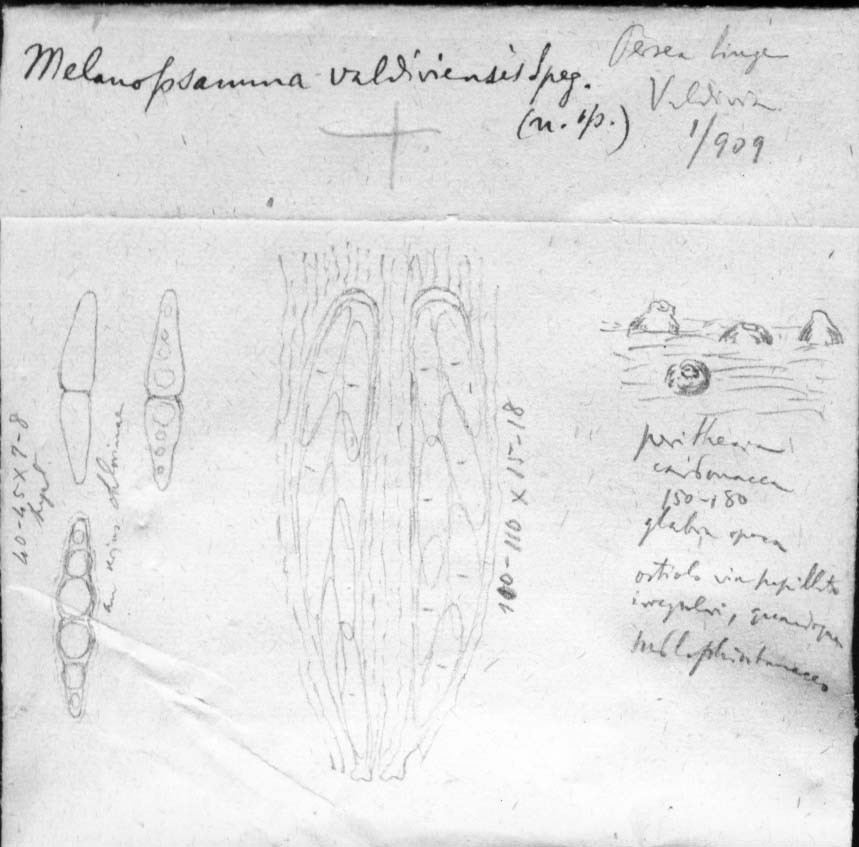 Melanopsamma valdiviensis Speg.
(n. sp.)
Persea lingue
Valdivia
1/909
40-45 X 7-8
hyal.
an serius chlorinae
100-110 X 15-18
perithecia
carbonacea
150-180
glabra opaca
ostiolo vix papillato
irregulari, quandoque